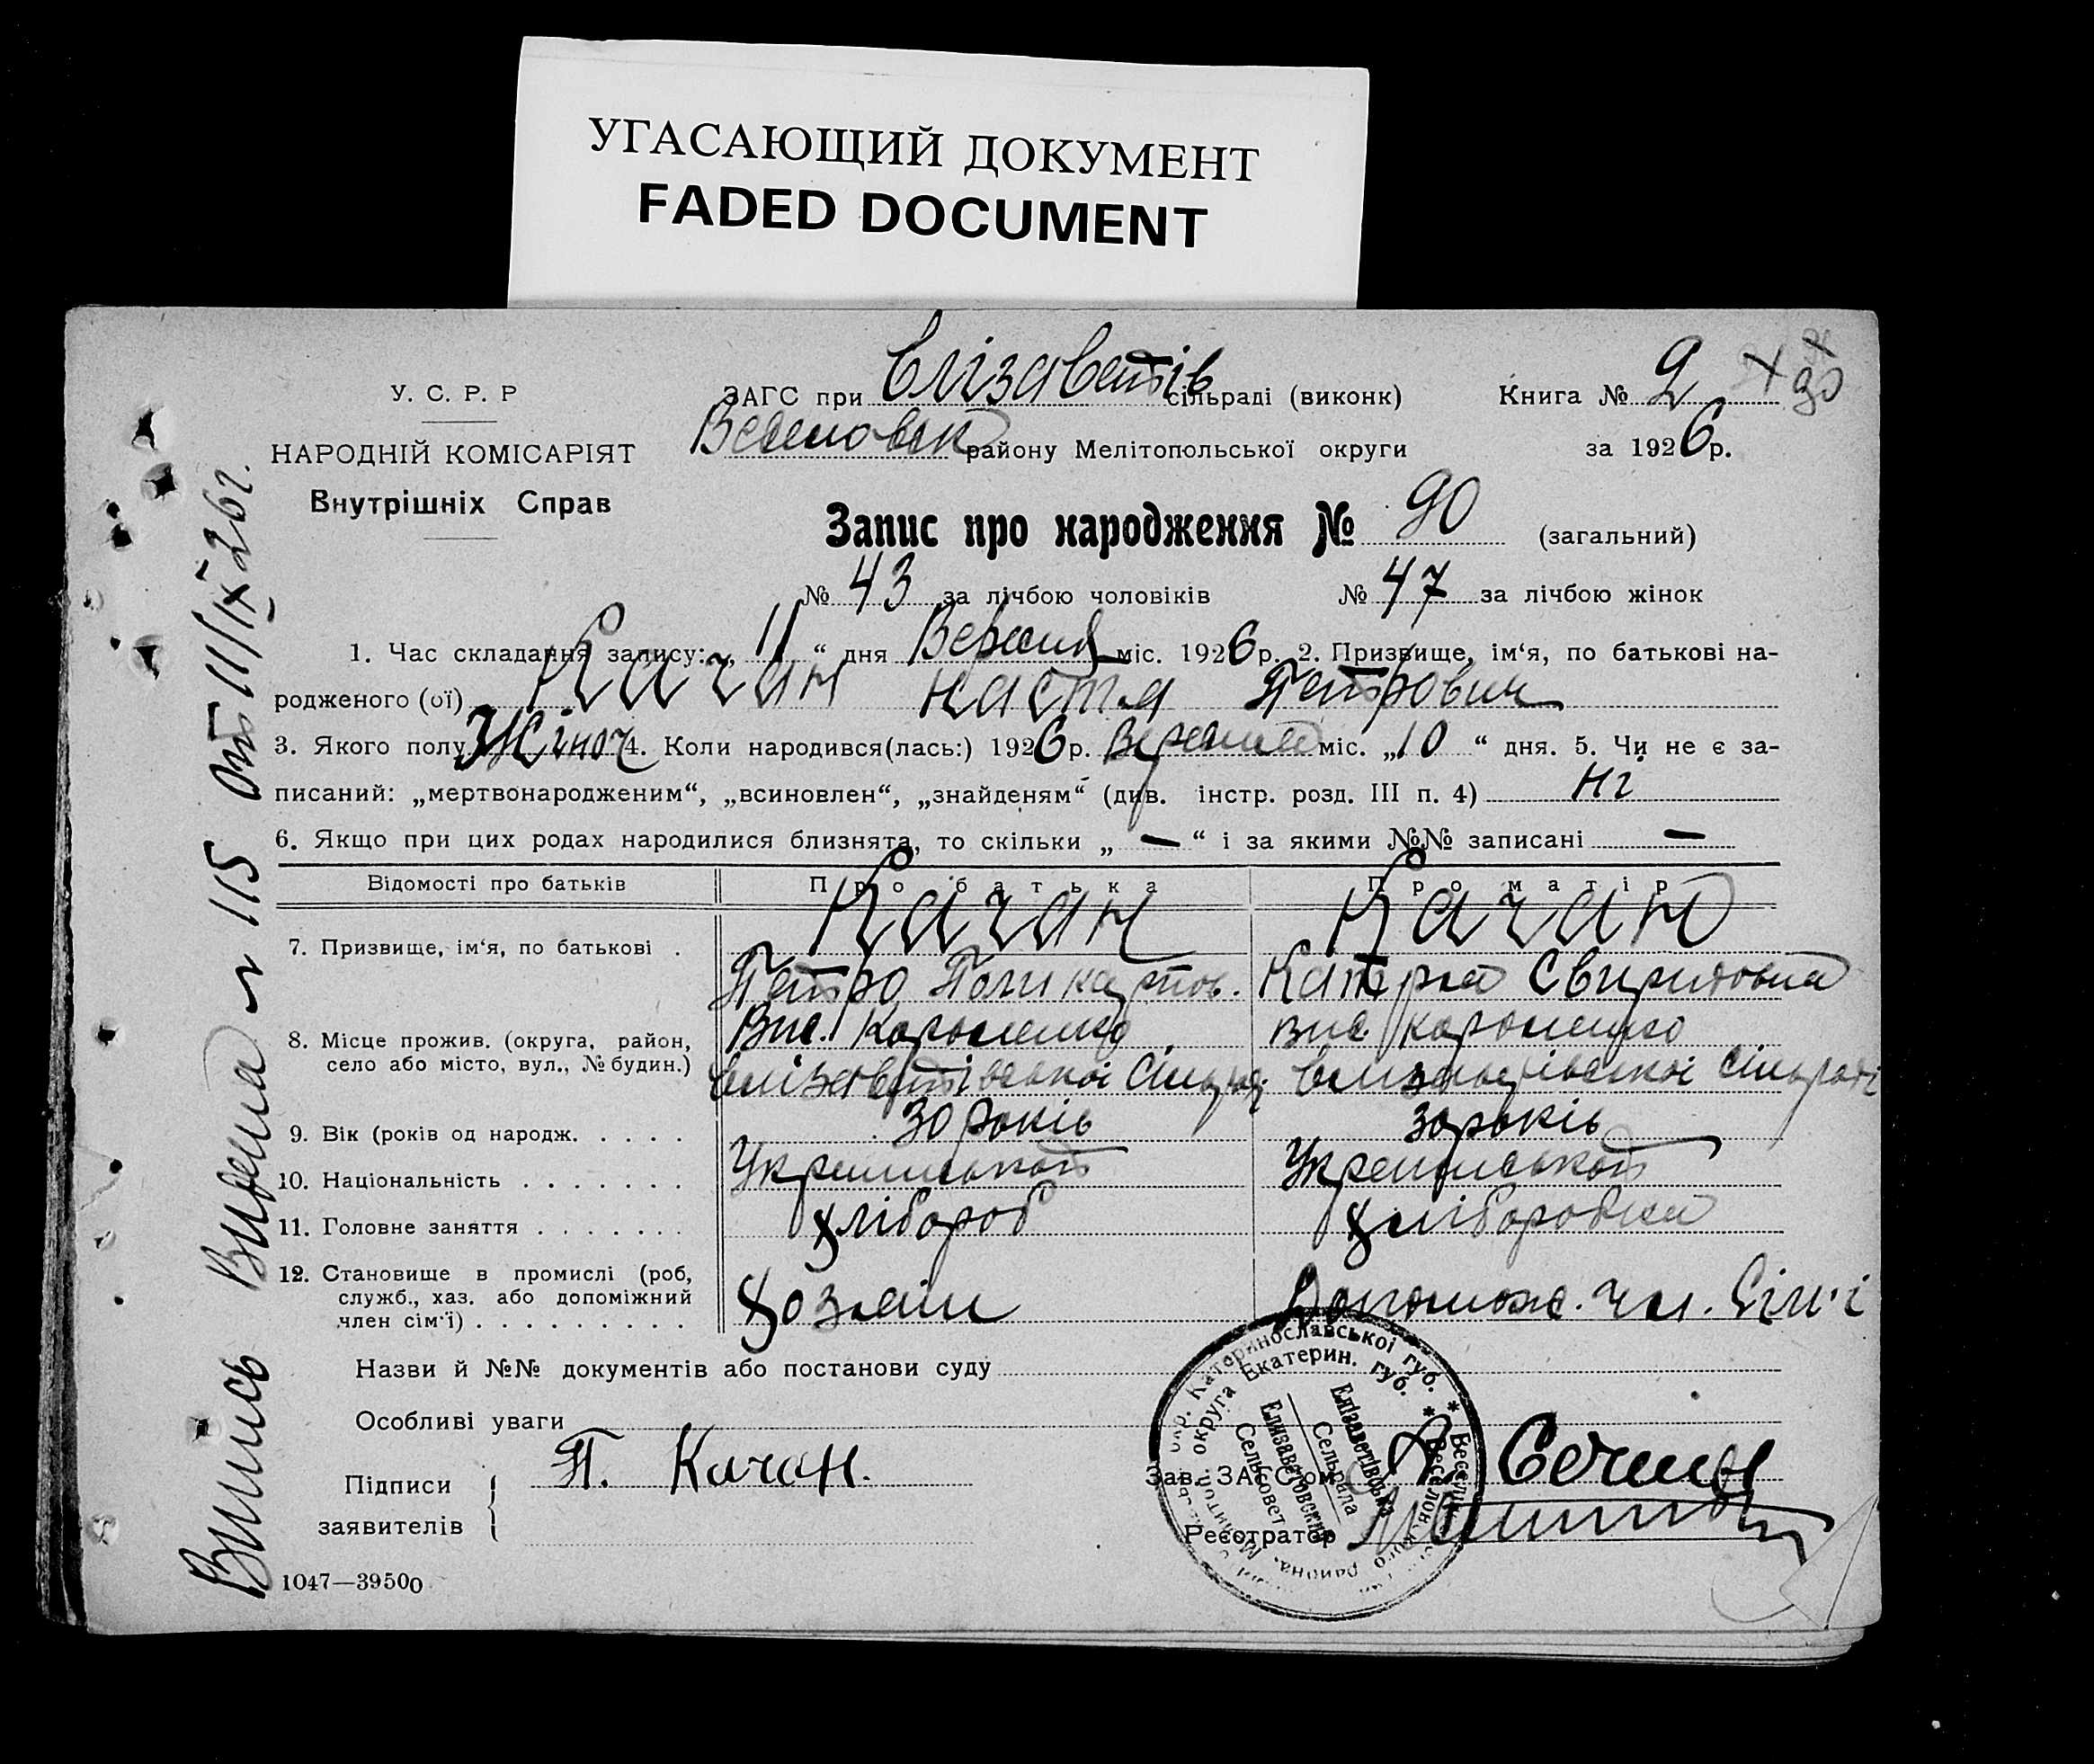 УГАСАЮЩИЙ ДОКУМЕНТ
FADED DOCUMENT
У. С. Р. Р
НАРОДНІЙ КОМІСАРІЯТ
Внутрішніх Справ
ЗАГС при Єлізаветів сільраді (виконк)
Книга № 2
90
Веселовськ району Мелітопольської округи
за 1926 р.
Запис про народження № 90 (загальний)
№ 43 за лічбою чоловіків № 47 за лічбою жінок
1. Час складання запису: „ 11 “ дня Вересня міс. 1926 р. 2. Призвище, ім‘я, по батькові на-
родженого (ої) Качан Настя Петрович
3. Якого полу Жіноч 4. Коли народився(лась:) 1926 р. Вересня міс. „ 10 “ дня. 5. Чи не є за-
писаний: „мертвонародженим“, „всиновлен“, „знайденям“ (див. інстр. розд. III п. 4) Ні
6. Якщо при цих родах народилися близнята, то скільки „ — “ і за якими №№ записані —
Відомості про батьків Про батька Про матір
7. Призвище, ім‘я, по батькові . Качан Качан
Петро Поликарпов. Катря Свиридовна
8. Місце прожив. (округа, район, село або місто, вул., № будин.) Вис. Короленко Вис. Короленко
Єлізаветівської Сільрад. Єлизаветівської сільраді
9. Вік (років од народж. . . . . 30 років 30 років
10. Національність . . . . . . . Української Української
11. Головне заняття . . . . . . . хлібороб хліборобка
12. Становище в промислі (роб, служб., хаз. або допоміжний член сім‘ї) . . . . . . . . . Хозяїн Допомож. чл. Сім‘ї
Назви й №№ документів або постанови суду
Особливі уваги
Підписи заявителів П. Качан.
Зав. ЗАГС‘ом
Реєстратор
1047—39500
Випись Видена № 115 от 11/IX 26 г.
Катеринославської губ. * Веселів
округа Екатерин. губ. * Веселовского района
Єлізаветівська Сельрада
Елизаветовский Сельсовет